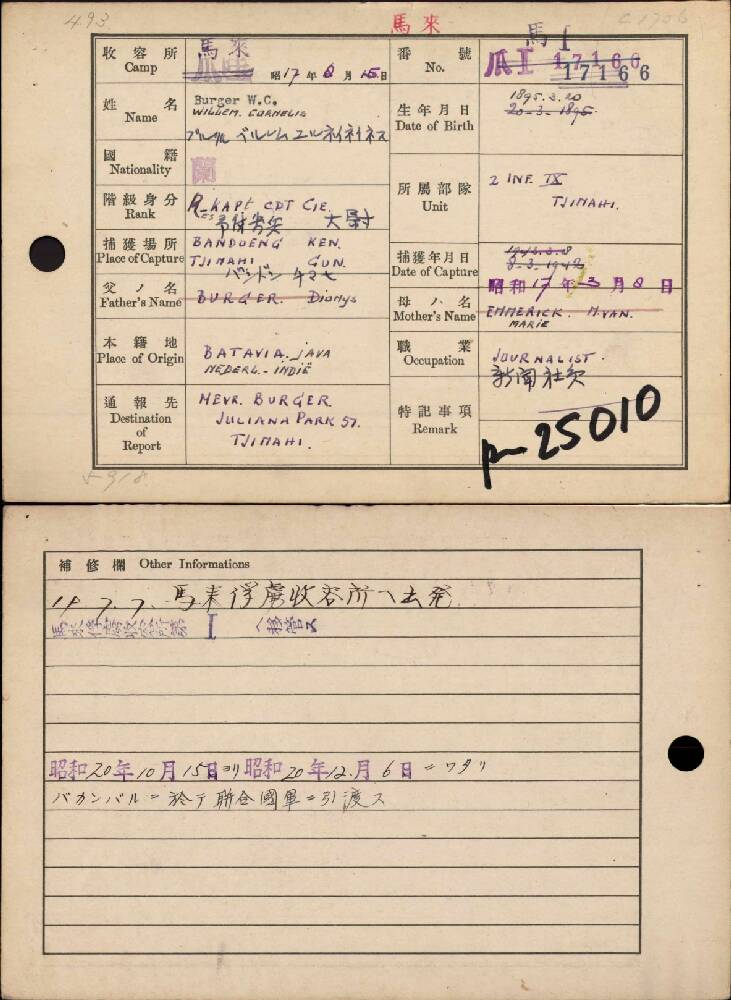 493
馬來
C 1706
收容所
Camp
馬來
瓜哇
昭17年8月15日
番號
No.
馬I
瓜I 17166
17166
姓名
Name
Burger W.C.
WILLEM. CORNELIS
生年月日
Date of Birth
1895.3.20
20-3-1895.
國籍
Nationality
蘭
階級身分
Rank
Res KAPt CDT CIE.
大尉
所屬部隊
Unit
2 INF. IX
TJIMAHI.
捕獲場所
Place of Capture
BANDOENG KEN.
TJIMAHI GUN.
バンドン チマヒ
捕獲年月日
Date of Capture
1942.3.8
8-3-1942
昭和17年3月8日
父ノ名
Father's Name
BURGER. Dionys
母ノ名
Mother's Name
EMMERICK. M.VAN.
MARIE
本籍地
Place of Origin
BATAVIA. JAVA
NEDERL.-INDIË
職業
Occupation
JOURNALIST.
通報先
Destination
of
Report
MEVR. BURGER.
JULIANA PARK 57.
TJIMAHI.
特記事項
Remark
25010
補修欄 Other Informations
馬来俘虜收容所ヘ出発
馬來俘虜收容所第 I ヘ移管ス
昭和20年10月15日ヨリ昭和20年12月6日ニワタリ
パカンバルニ於テ聯合國軍ニ引渡ス